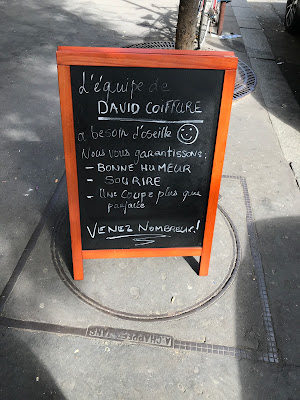 L'équipe de
DAVID COIFFURE
a besoin d'oseille
Nous vous garantissons:
- BONNE HUMEUR
- SOURIRE
- Une coupe plus que
parfaite
VENEZ NOMBREUX!